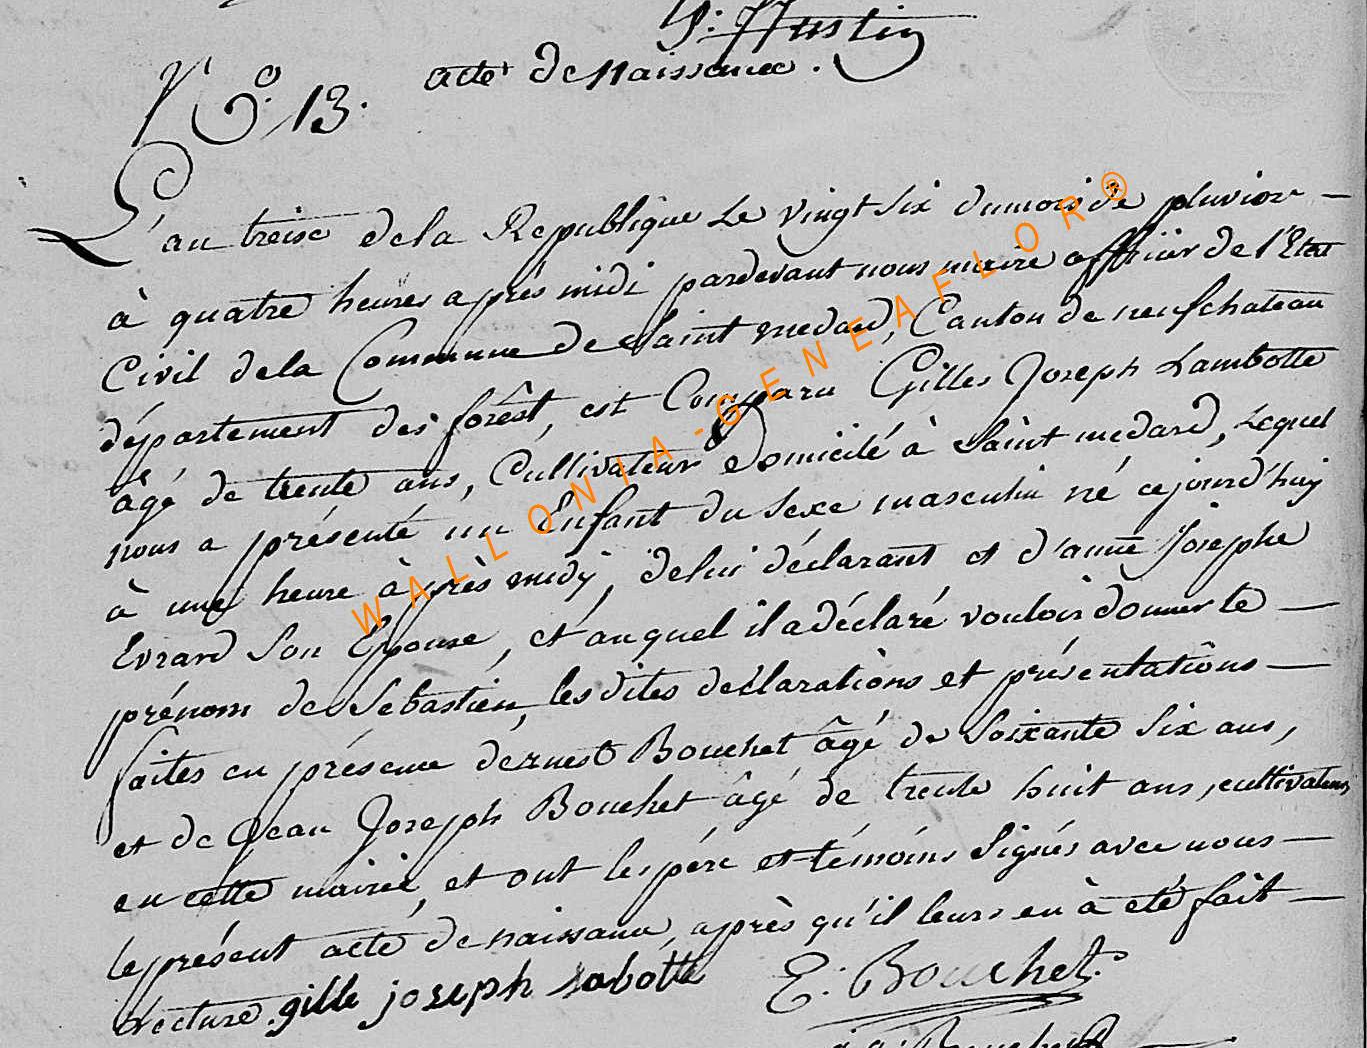 P. Hustin
N.º 13. acte de naissance.
L'an treise de la Republique Le vingt six du mois de pluviose
à quatre heures après midi pardevant nous maire officier de l'Etat
Civil de la Commune de Saint medard, Canton de neufchateau
département des forêst, est Comparu Gilles Joseph Lambotte
âgé de trente ans, Cultivateur Domicilé à Saint medard, Lequel
nous a présenté un Enfant du Sexe masculin né cejourd'huy
à une heure après midÿ, de lui déclarant et d'anne Josephe
Evrard Son Epouse, et auquel il a déclaré vouloir donner le
prénom de Sebastien, les dites déclarations et présentations
faites en présence d'ernest Bouchet âgé de Soixante Six ans,
et de Jean Joseph Bouchet âgé de trente huit ans, cultivateurs
en cette mairie, et ont les père et témoins Signés avec nous
le présent acte de naissance, après qu'il leurs en à eté fait
Lecture. gille joseph labotte E: Bouchet.
j j: Bouchet
WALLONIA-GENEAFLOR®